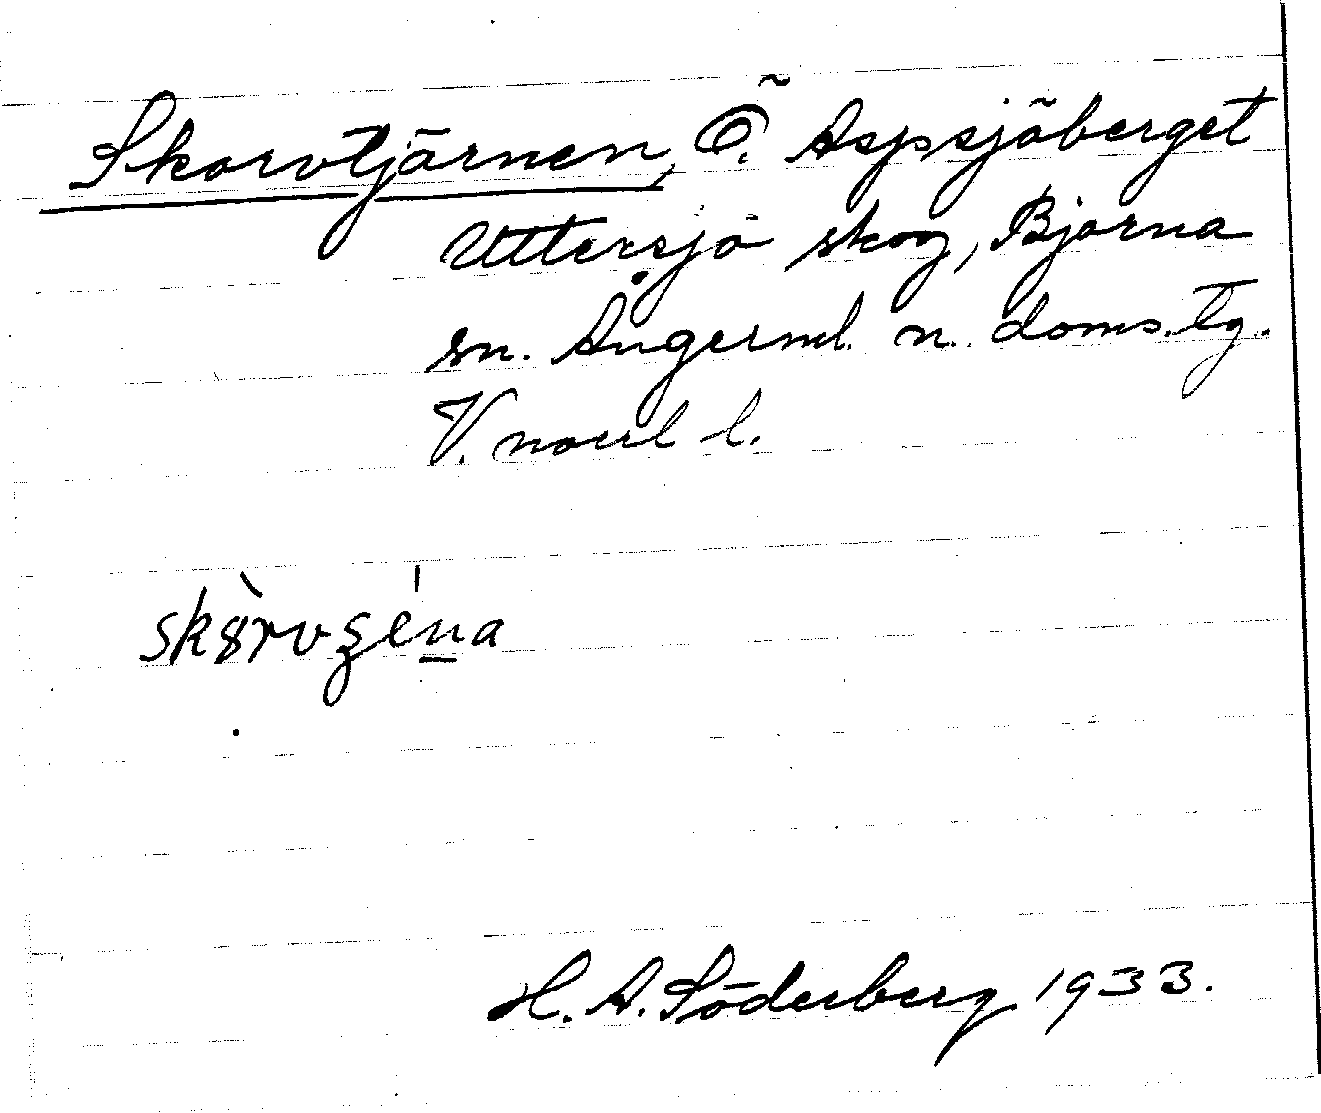 Skorvtjärnen, Ö. Aspsjöberget
Uttersjö skog, Björna
sn. Ångerml. n. doms. tg.
V. norrl l.
H. A. Söderberg 1933.